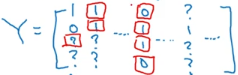 Y = [ 1 1 0 ?
0 1 ..... 1 1 .....
? ? 1 ?
? ? 0 ? ]